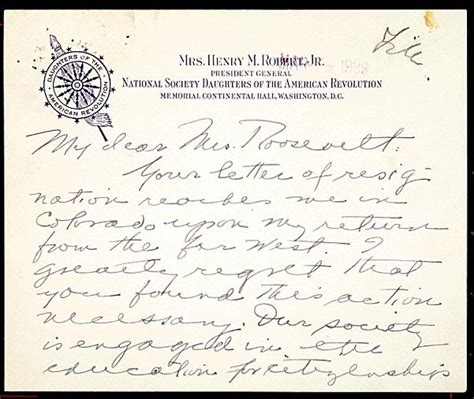 File
MRS. HENRY M. ROBERT, JR.
PRESIDENT GENERAL
NATIONAL SOCIETY DAUGHTERS OF THE AMERICAN REVOLUTION
MEMORIAL CONTINENTAL HALL, WASHINGTON, D.C.
DAUGHTERS OF THE
AMERICAN REVOLUTION
My dear Mrs. Roosevelt:
Your letter of resig-
nation reaches me in
Colorado upon my return
from the far West. I
greatly regret that
you found this action
necessary. Our society
is engaged in the
education for citizenship